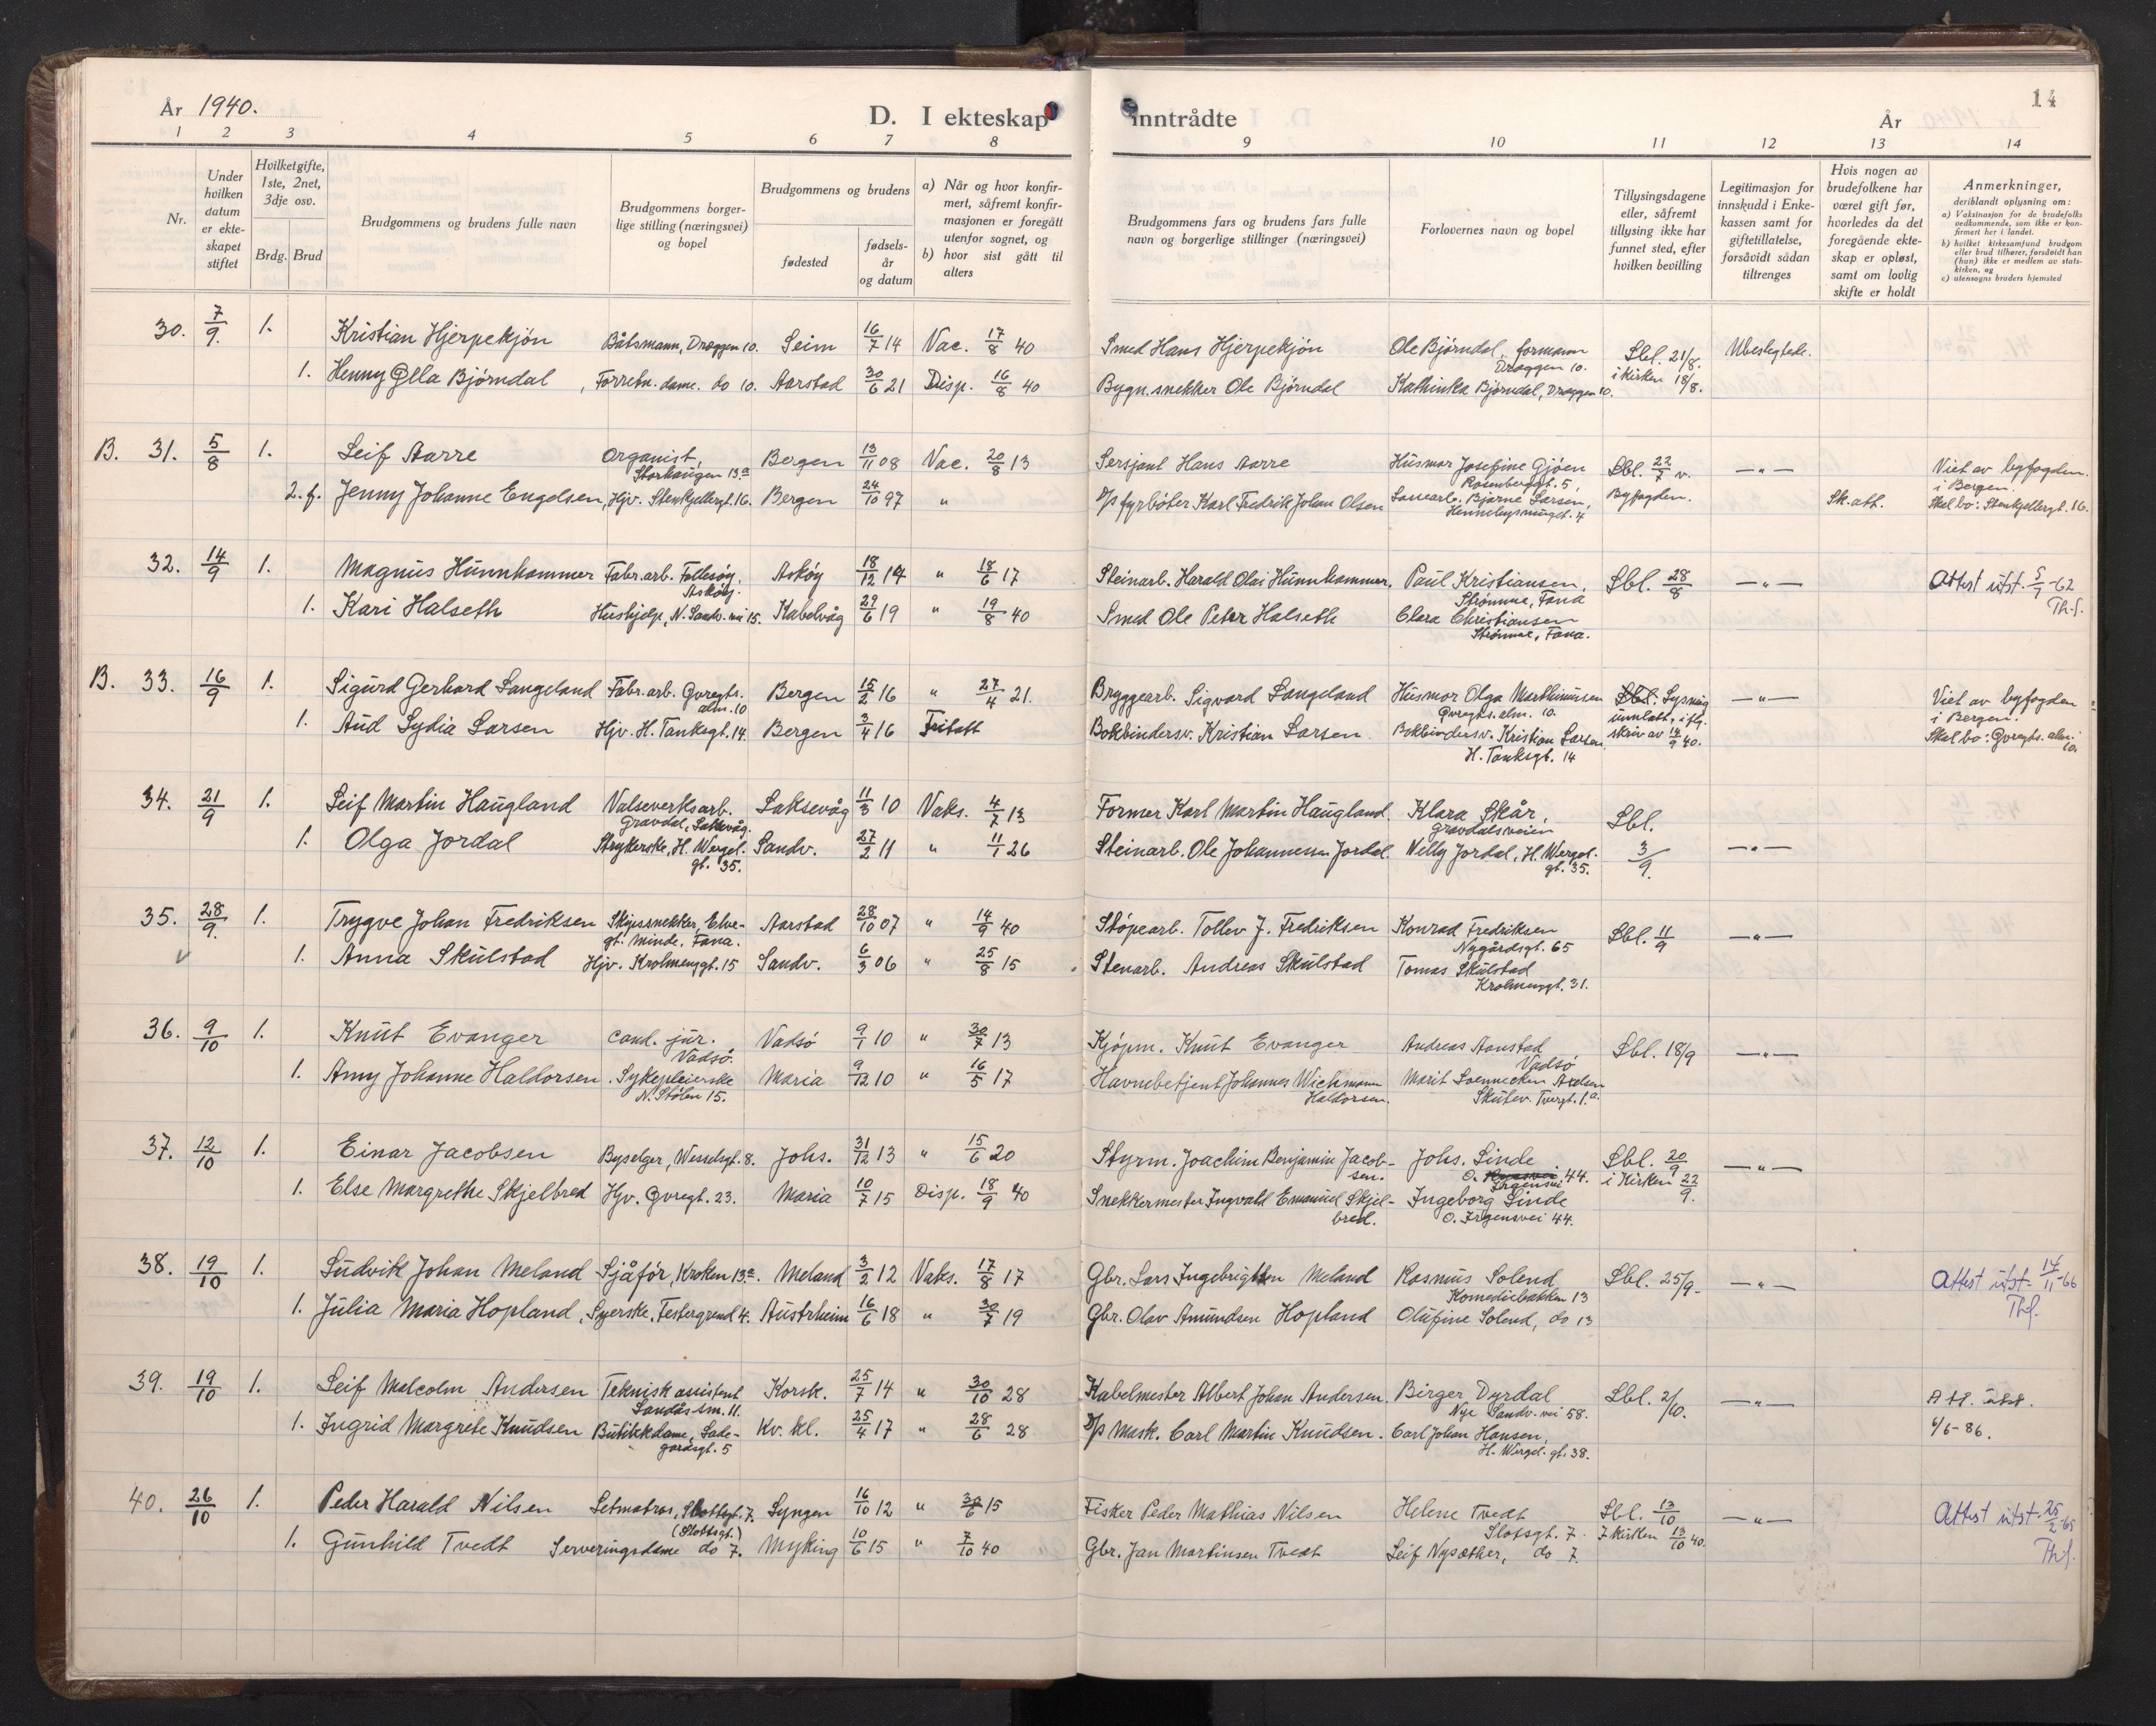 År 1940.
D. I ekteskap inntrådte
År
14
1 2 3 4 5 6 7 8 9 10 11 12 13 14
Nr.
Under hvilken datum er ekteskapet stiftet
Hvilket gifte, 1ste, 2net, 3dje osv.
Brdg. Brud
Brudgommens og brudens fulle navn
Brudgommens borgerlige stilling (næringsvei) og bopel
Brudgommens og brudens
fødested
fødselsår og datum
a) Når og hvor konfirmert, såfremt konfirmasjonen er foregått utenfor sognet, og
b) hvor sist gått til alters
Brudgommens fars og brudens fars fulle navn og borgerlige stillinger (næringsvei)
Forlovernes navn og bopel
Tillysingsdagene eller, såfremt tillysing ikke har funnet sted, efter hvilken bevilling
Legitimasjon for innskudd i Enkekassen samt for giftetillatelse, forsåvidt sådan tiltrenges
Hvis nogen av brudefolkene har været gift før, hvorledes da det foregående ekteskap er opløst, samt om lovlig skifte er holdt
Anmerkninger, deriblandt oplysning om:
a) Vaksinasjon for de brudefolks vedkommende, som ikke er konfirmert her i landet.
b) hvilket kirkesamfund brudgom eller brud tilhører, forsåvidt han (hun) ikke er medlem av statskirken, og
c) utensogns bruders hjemsted
30. 7/9. 1. Kristian Hjerpekjøn Båtsmann, Dræggen 10. Seim 16/7 14 Vac. 17/8 40 Smed Hans Hjerpekjøn Ole Bjørndal, formann Sbl. 21/8. Ubeslegtede.
Dræggen 10. i kirken 18/8.
1. Henny Ella Bjørndal, Forretn. dame. do 10. Aarstad 30/6 21 Disp. 16/8 40 Bygn. snekker Ole Bjørndal Kathinka Bjørndal, Dræggen 10.
B. 31. 5/8 1. Leif Aarre Organist, Bergen 13/11 08 Vac. 20/8 13 Sersjant Hans Aarre Husmor Josefine Gjøen Sbl. 22/7 v. —"— Viet av byfogden
Storhaugen 13a Rosenberggt. 5, Byfogden. i Bergen.
2. f. Jenny Johanne Engelsen, Hjv. Stenkjellergt. 16. Bergen 24/10 97 " D/s fyrbøter Karl Fredrik Johan Olsen Lossearb. Bjarne Larsen, Sk. att. Skal bo: Stenkjellergt. 16.
32. 14/9 1. Magnus Hunnhammer Fabr. arb. Follesøy, Askøy 18/12 14 " 18/6 17 Steinarb. Harald Olai Hunnhammer. Paul Kristiansen, Sbl. 28/8 —"— Attest utst. 5/7-62
Askøy. Strømme, Fana Th.f.
1. Kari Halseth Hushjelp, N. Sandv. vei 15. Kabelvåg 29/6 19 " 19/8 40 Smed Ole Peter Halseth Clara Christiansen
Strømme, Fana.
B. 33. 16/9 1. Sigurd Gerhard Langeland Fabr. arb. Øvregts. Bergen 15/2 16 " 27/4 21. Bryggearb. Sigvard Langeland Husmor Olga Marthinussen Sbl. Lysning —"— Viet av byfogden
alm. 10 Øvregts. alm. 10. unnlatt, iflg. i Bergen.
1. Aud Lydia Larsen Hjv. H. Tanksgt. 14. Bergen 3/4 16 Fritatt Bokbindersv. Kristian Larsen Bokbindersv. Kristian Larsen, skriv av 14/9 40. Skal bo: Øvregts. alm. 10.
H. Tanksgt. 14
34. 21/9 1. Leif Martin Haugland Valseverksarb. Laksevåg 11/3 10 Vaks. 4/7 13 Former Karl Martin Haugland. Klara Skår, Sbl.
Gravdal, Laksevåg. Gravdalsveien
1. Olga Jordal Strykerske, H. Wergel. Sandv. 27/2 11 " 11/1 26 Steinarb. Ole Johannessen Jordal. Willy Jordal, H. Wergel. 3/9. —"—
gt. 35. gt. 35.
35. 28/9. 1. Trygve Johan Fredriksen Skipssnekker, Elve- Aarstad 28/10 07 " 14/9 40 Støpearb. Tollev J. Fredriksen Konrad Fredriksen Sbl. 11/9 —"—
gt. Minde, Fana. Nygårdsgt. 65
1. Anna Skulstad Hjv. Krohnengt. 15 Sandv. 6/3 06 " 25/8 15 Stenarb. Andreas Skulstad Tomas Skulstad
Krohnengt. 31.
36. 9/10 1. Knut Evanger cand. jur. Vadsö 9/1 10 " 30/7 13 Kjøpm. Knut Evanger Andreas Aanstad Sbl. 18/9 —"—
Vadsö. Vadsö
1. Amy Johanne Haldorsen. Sykepleierske Maria 9/12 10 " 16/5 17 Havnebetjent Johannes Wichmann Marit Soennecken Axelsen
N. Stølen 15. Haldorsen. Skutev. Tvergt. 1.a.
37. 12/10 1. Einar Jacobsen Byselger, Wesselsgt. 8. Johs. 31/12 13 " 15/6 20 Styrm. Joachim Benjamin Jacob- Johs. Linde Sbl. 20/9 —"—
sen. O. Irgensvei 44. i Kirken 22/9.
1. Else Margrethe Skjelbred Hjv. Øvregt. 23. Maria 10/7 15 Disp. 18/9 40 Snekkermester Ingvald Emanuel Skjel- Ingeborg Linde
bred. O. Irgensvei 44.
38. 19/10 1. Ludvik Johan Meland Sjåfór, Kroken 13a. Meland 3/2 12 Vaks. 17/8 17 Gbr. Lars Ingebrigtsen Meland Rasmus Solend Sbl. 25/9. —"— Attest utst. 14/11-66
Komediebakken 13 Th.f.
1. Julia Maria Hopland, Syerske, Festergrend 4. Austrheim 16/6 18 " 30/7 19 Gbr. Olav Amundsen Hopland Olufine Solend, do 13
39. 19/10 1. Leif Malcolm Andersen Teknisk assistent Korsk. 25/7 14 " 30/10 28 Kabelmester Albert Johan Andersen. Birger Dyrdal Sbl. 2/10. —"— Att. utst.
Landåssm. 11. Nye Sandv. vei 58.
1. Ingrid Margrete Knudsen Butikkdame, Lade- Kv. kl. 25/4 17 " 28/6 28 D/s Mask. Carl Martin Knudsen. Carl Johan Hansen, 4/6-86.
gårdsgt. 5 H. Wergel. gt. 38.
40. 26/10 1. Peder Harald Nilsen Letmatros, Slottsgt. 7. Lyngen 16/10 12 " 15 Fisker Peder Mathias Nilsen Helene Tvedt Sbl. 13/10 —"— Attest utst. 25/2-65
(Slottsgt.) Slotsgt. 7. I kirken 13/10 40. Th.f.
1. Gunhild Tvedt Serveringsdame do 7. Myking 10/6 15 " 7/10 40 Gbr. Jan Martinsen Tvedt Leif Nysæther, do 7.